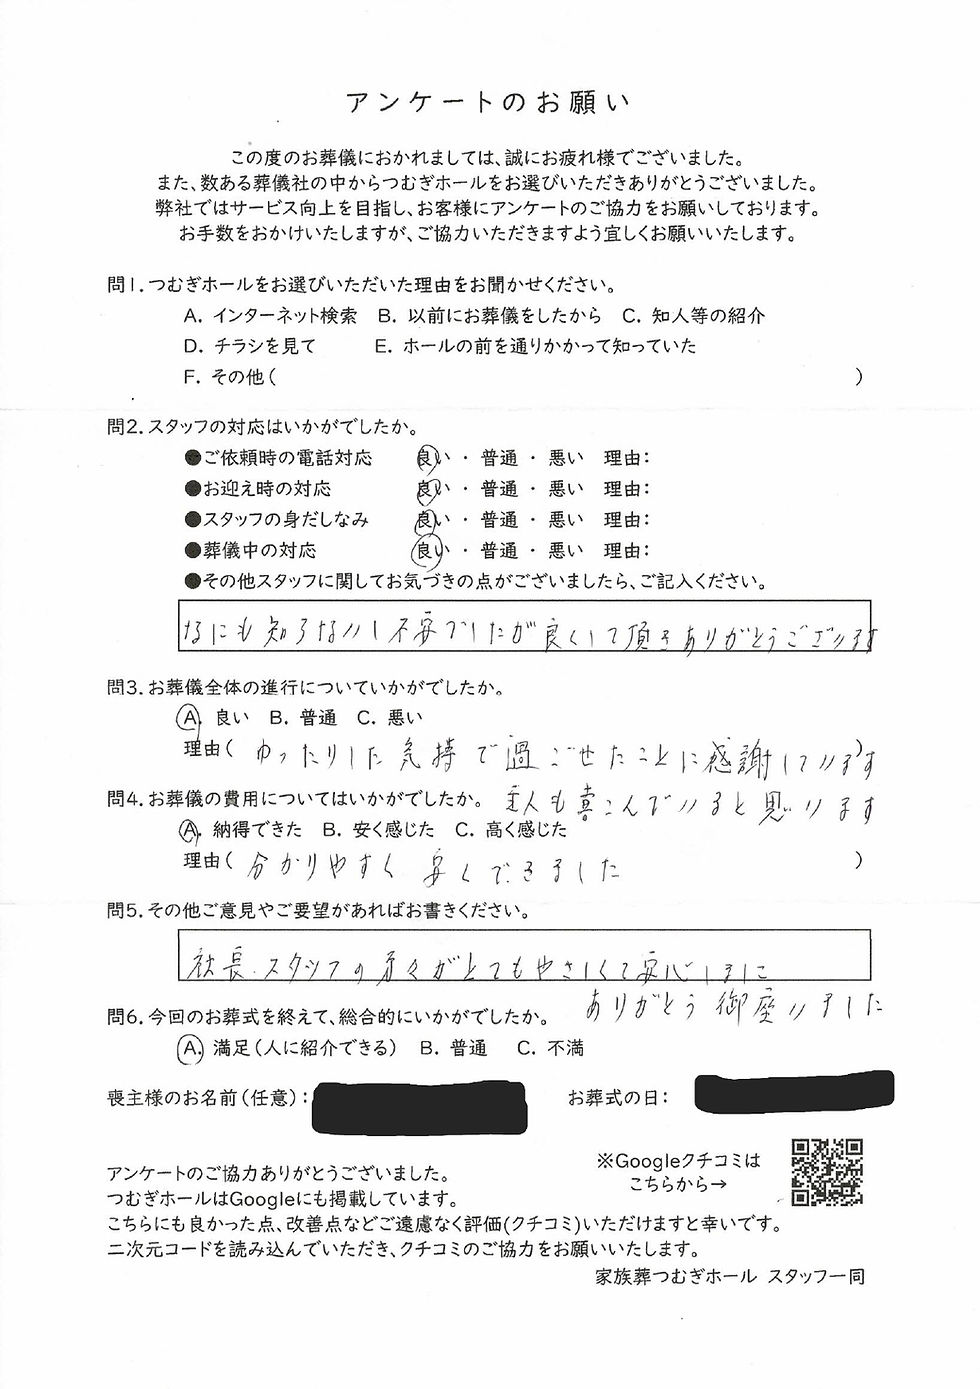 アンケートのお願い
この度のお葬儀におかれましては、誠にお疲れ様でございました。
また、数ある葬儀社の中からつむぎホールをお選びいただきありがとうございました。
弊社ではサービス向上を目指し、お客様にアンケートのご協力をお願いしております。
お手数をおかけいたしますが、ご協力いただきますよう宜しくお願いいたします。
問1. つむぎホールをお選びいただいた理由をお聞かせください。
A. インターネット検索 B. 以前にお葬儀をしたから C. 知人等の紹介
D. チラシを見て E. ホールの前を通りかかって知っていた
F. その他( )
問2. スタッフの対応はいかがでしたか。
●ご依頼時の電話対応 良い ・ 普通 ・ 悪い 理由:
●お迎え時の対応 良い ・ 普通 ・ 悪い 理由:
●スタッフの身だしなみ 良い ・ 普通 ・ 悪い 理由:
●葬儀中の対応 良い ・ 普通 ・ 悪い 理由:
●その他スタッフに関してお気づきの点がございましたら、ご記入ください。
なにも知らないし不安でしたが良くして頂きありがとうございます
問3. お葬儀全体の進行についていかがでしたか。
A. 良い B. 普通 C. 悪い
理由( ゆったりした気持で過ごせたことに感謝しています)
主人も喜こんでいると思います
問4. お葬儀の費用についてはいかがでしたか。
A. 納得できた B. 安く感じた C. 高く感じた
理由( 分かりやすく 安くできました )
問5. その他ご意見やご要望があればお書きください。
社長.スタッフの方々がとてもやさしくて安心しました
ありがとう御座いました
問6. 今回のお葬式を終えて、総合的にいかがでしたか。
A. 満足(人に紹介できる) B. 普通 C. 不満
喪主様のお名前(任意): お葬式の日:
アンケートのご協力ありがとうございました。
つむぎホールはGoogleにも掲載しています。
※Googleクチコミは
こちらから→
こちらにも良かった点、改善点などご遠慮なく評価(クチコミ)いただけますと幸いです。
二次元コードを読み込んでいただき、クチコミのご協力をお願いいたします。
家族葬つむぎホール スタッフ一同